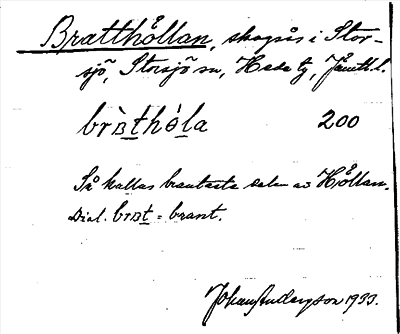 Bratthållan, skogsås i Stor-
sjö, Storsjö sn, Hede tg, Jämtl. l.
brʌ̀t̲hɵ́l̲a 200
Så kallas brantaste delen av Hållan.
Dial. brʌt̲ = brant.
Johan Anderson 1933.